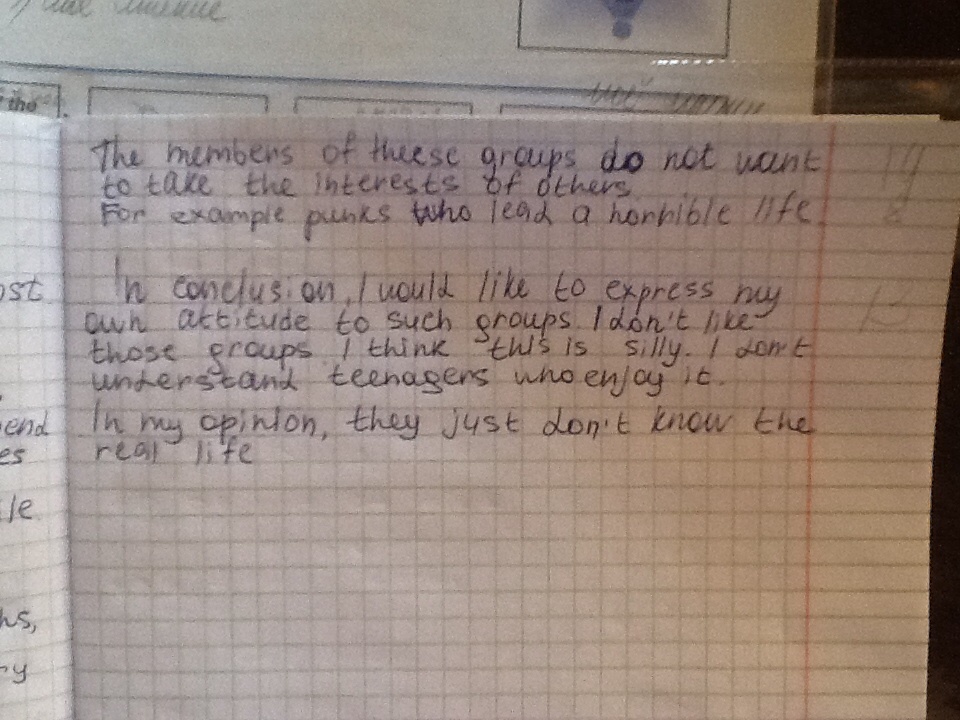 the
The members of theese groups do not want
to take the interests of others
For example punks who lead a horrible life
ost
In conclusion, I would like to express my
own attitude to such groups. I don't like
those groups. I think this is silly. I don't
understand teenagers who enjoy it.
end
In my opinion, they just don't know the
es
real life
le
ns,
ry